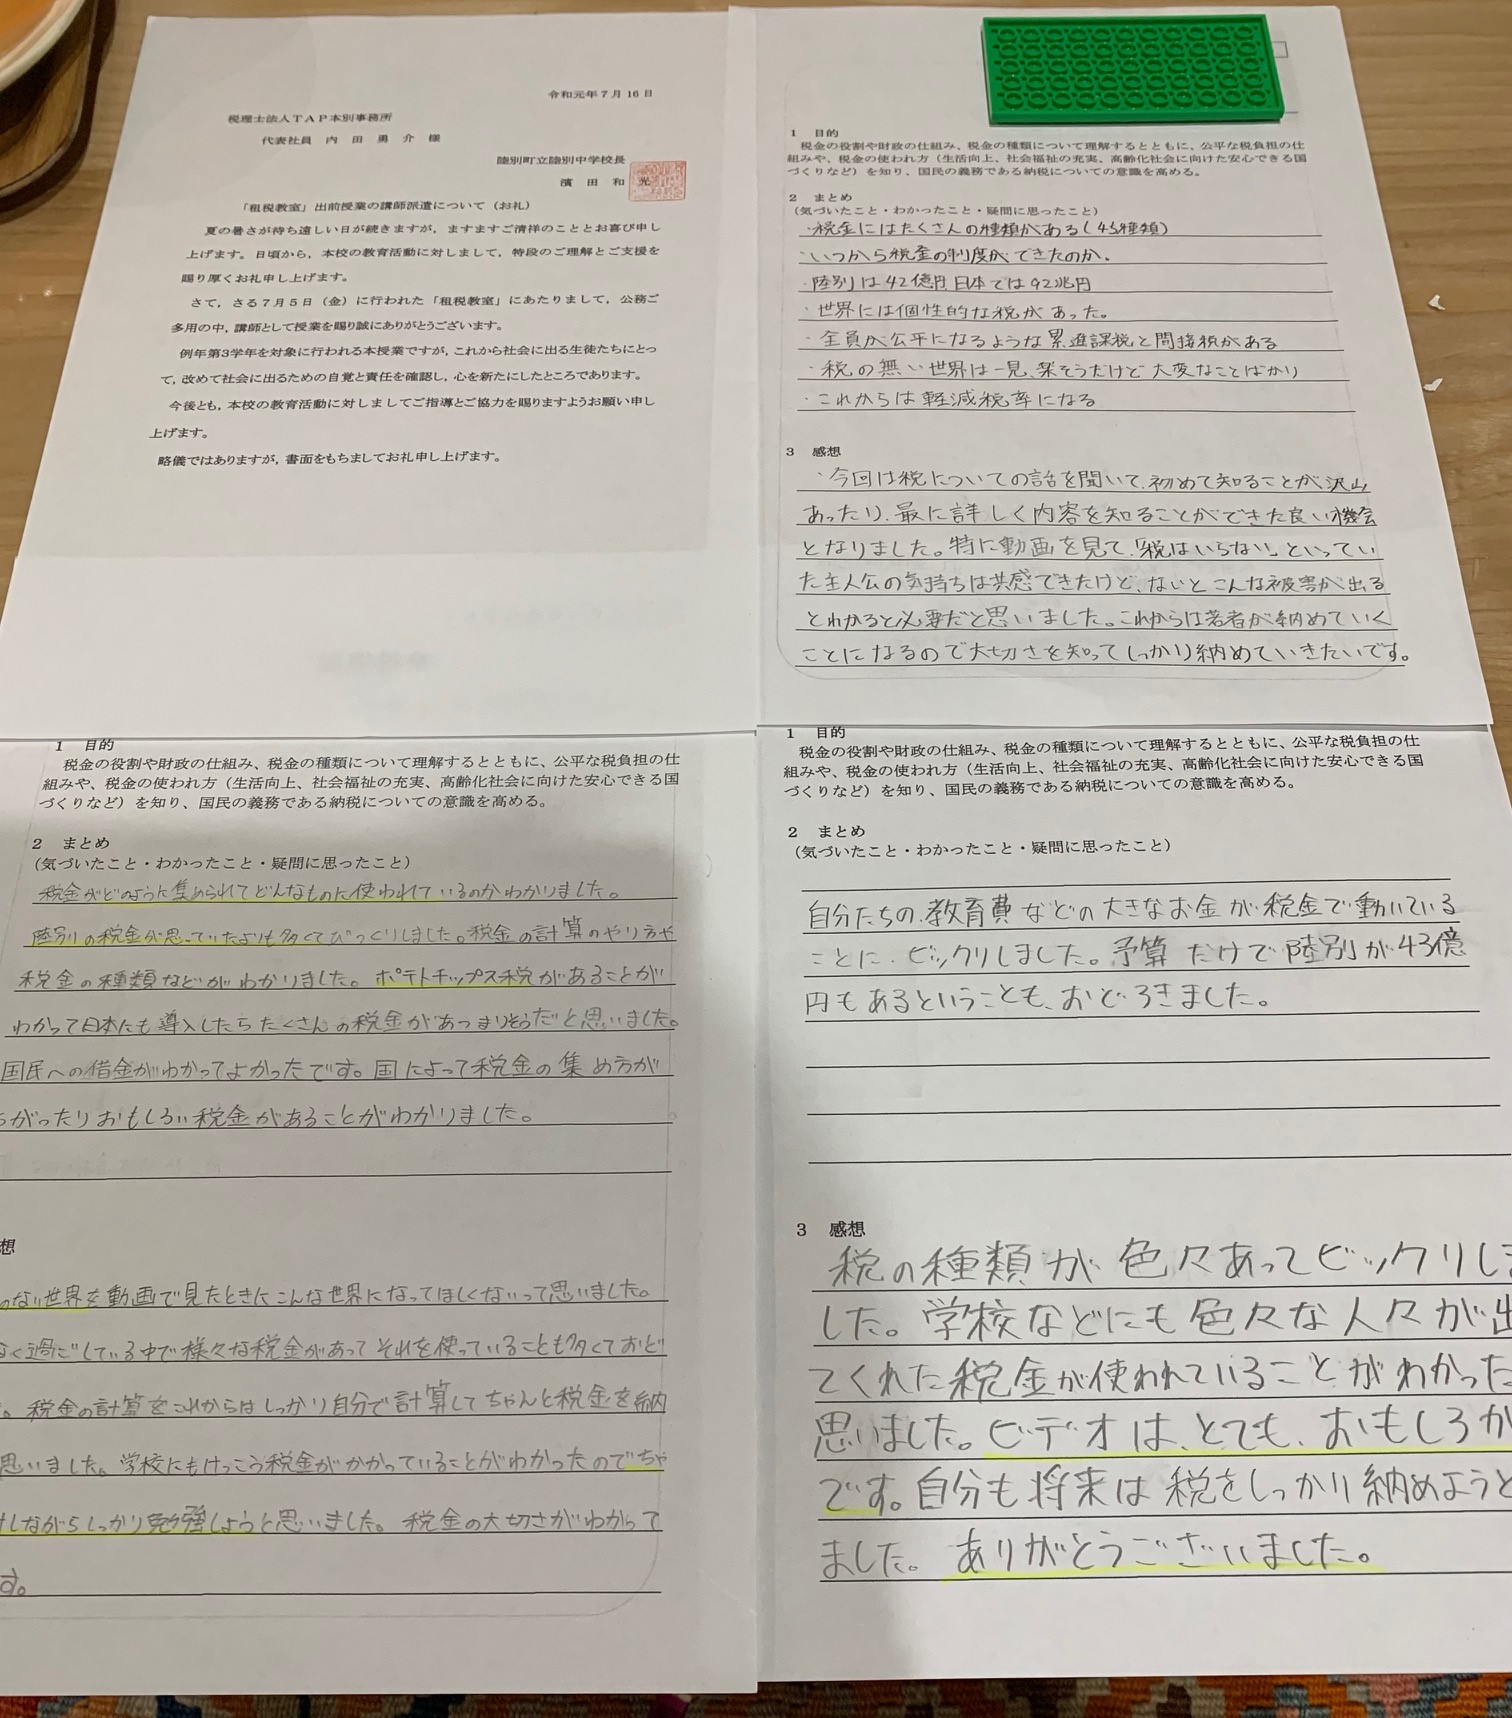 令和元年7月16日
税理士法人TAP本別事務所
代表社員 内田勇介 様
陸別町立陸別中学校長
濱田和光
「租税教室」出前授業の講師派遣について(お礼)
夏の暑さが待ち遠しい日が続きますが,ますますご清祥のこととお喜び申し
上げます。日頃から,本校の教育活動に対しまして,特段のご理解とご支援を
賜り厚くお礼申し上げます。
さて,さる7月5日(金)に行われた「租税教室」にあたりまして,公務ご
多用の中,講師として授業を賜り誠にありがとうございます。
例年第3学年を対象に行われる本授業ですが,これから社会に出る生徒たちにとっ
て,改めて社会に出るための自覚と責任を確認し,心を新たにしたところであります。
今後とも,本校の教育活動に対しましてご指導とご協力を賜りますようお願い申し
上げます。
略儀ではありますが,書面をもちましてお礼申し上げます。
1 目的
税金の役割や財政の仕組み、税金の種類について理解するとともに、公平な税負担の仕
組みや、税金の使われ方(生活向上、社会福祉の充実、高齢化社会に向けた安心できる国
づくりなど)を知り、国民の義務である納税についての意識を高める。
2 まとめ
(気づいたこと・わかったこと・疑問に思ったこと)
・税金にはたくさんの種類がある(45種類)
・いつから税金の制度ができたのか.
・陸別は42億円日本では92兆円
・世界には個性的な税があった。
・全員が公平になるような累進課税と間接税がある
・税の無い世界は一見、楽そうだけど大変なことばかり
・これからは軽減税率になる
3 感想
・今回は税についての話を聞いて、初めて知ることが沢山
あったり、最に詳しく内容を知ることができた良い機会
となりました。特に動画を見て、「税はいらない」といってい
た主人公の気持ちは共感できたけど、ないとこんな被害が出る
とわかると必要だと思いました。これからは若者が納めていく
ことになるので大切さを知ってしっかり納めていきたいです。
1 目的
税金の役割や財政の仕組み、税金の種類について理解するとともに、公平な税負担の仕
組みや、税金の使われ方(生活向上、社会福祉の充実、高齢化社会に向けた安心できる国
づくりなど)を知り、国民の義務である納税についての意識を高める。
2 まとめ
(気づいたこと・わかったこと・疑問に思ったこと)
税金がどのように集められてどんなものに使われているのかわかりました。
陸別の税金が思っていたよりも多くてびっくりしました。税金の計算のやり方や
税金の種類などがわかりました。ポテトチップス税があることが
わかって日本にも導入したらたくさんの税金があつまりそうだと思いました。
国民への借金がわかってよかったです。国によって税金の集め方が
がったりおもしろい税金があることがわかりました。
想
のない世界を動画で見たときにこんな世界になってほしくないって思いました。
なく過ごしている中で様々な税金があってそれを使っていることも多くておど
。税金の計算をこれからはしっかり自分で計算してちゃんと税金を納
思いました。学校にもけっこう税金がかかっていることがわかったのでちゃ
しながらしっかり勉強しようと思いました。税金の大切さがわかって
す。
1 目的
税金の役割や財政の仕組み、税金の種類について理解するとともに、公平な税負担の仕
組みや、税金の使われ方(生活向上、社会福祉の充実、高齢化社会に向けた安心できる国
づくりなど)を知り、国民の義務である納税についての意識を高める。
2 まとめ
(気づいたこと・わかったこと・疑問に思ったこと)
自分たちの、教育費などの大きなお金が税金で動いている
ことに、ビックリしました。予算だけで陸別が43億
円もあるということも、おどろきました。
3 感想
税の種類が色々あってビックリしま
した。学校などにも色々な人々が出
てくれた税金が使われていることがわかった
思いました。ビデオは、とても、おもしろか
です。自分も将来は税をしっかり納めようと
ました。ありがとうございました。